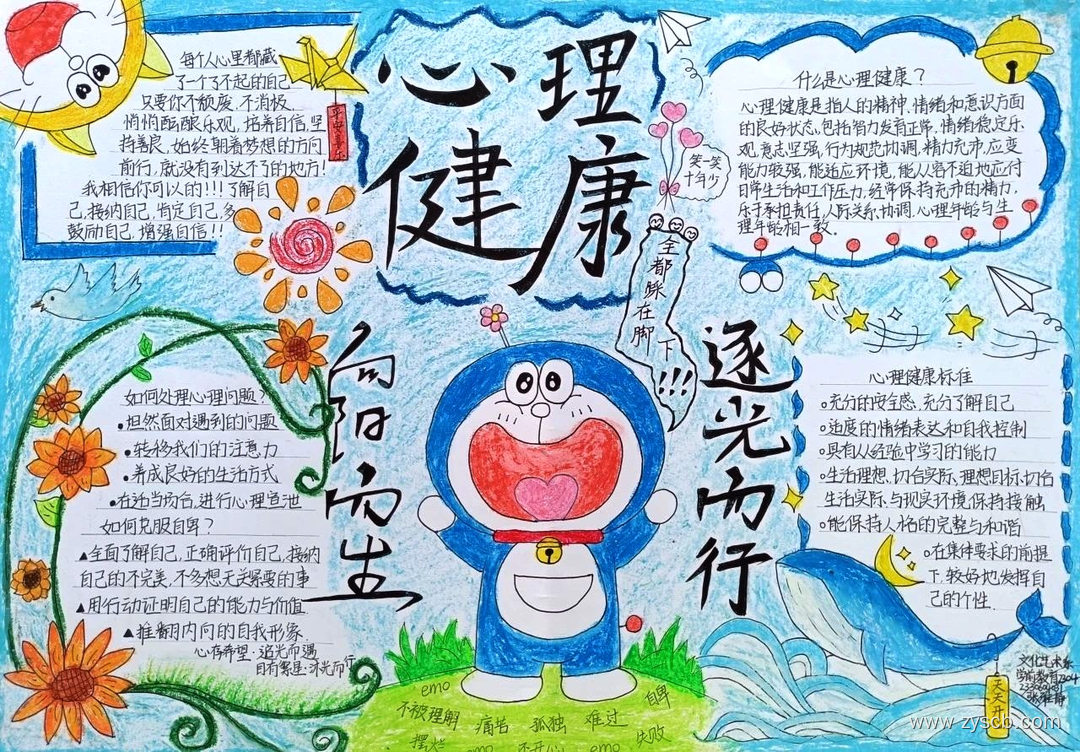 心理
健康
每个人心里都藏
了一个了不起的自己
只要你不颓废,不消极
悄悄酝酿乐观,培养自信,坚
持善良,始终朝着梦想的方向
前行,就没有到达不了的地方!
我相信你可以的!!!了解自
己,接纳自己,肯定自己,多
鼓励自己,增强自信!!
平安喜乐
笑一笑
十年少
全都踩在脚下!!!
什么是心理健康?
心理健康是指人的精神,情绪和意识方面
的良好状态,包括智力发育正常,情绪稳定乐
观,意志坚强,行为规范协调,精力充沛,应变
能力较强,能适应环境,能从容不迫地应付
日常生活和工作压力,经常保持充沛的精力,
乐于承担责任,人际关系协调,心理年龄与生
理年龄相一致。
向阳而生
逐光而行
如何处理心理问题?
•坦然面对遇到的问题
•转移我们的注意力
•养成良好的生活方式
•在适当场合,进行心理宣泄
如何克服自卑?
▲全面了解自己,正确评价自己,接纳
自己的不完美,不多想无关紧要的事
▲用行动证明自己的能力与价值
▲推翻内向的自我形象
心存希望·追光而遇
目有繁星·沐光而行
心理健康标准
○充分的安全感,充分了解自己
○适度的情绪表达和自我控制
○具有从经验中学习的能力
○生活理想,切合实际,理想目标,切合
生活实际,与现实环境保持接触
○能保持人格的完整与和谐
○在集体要求的前提
下,较好地发挥自
己的个性
emo
不被理解
痛苦
孤独
难过
自卑
摆烂
emo
不开心
emo
失败
天天开
文化艺术系
学前教育2304
www.zyscb.com